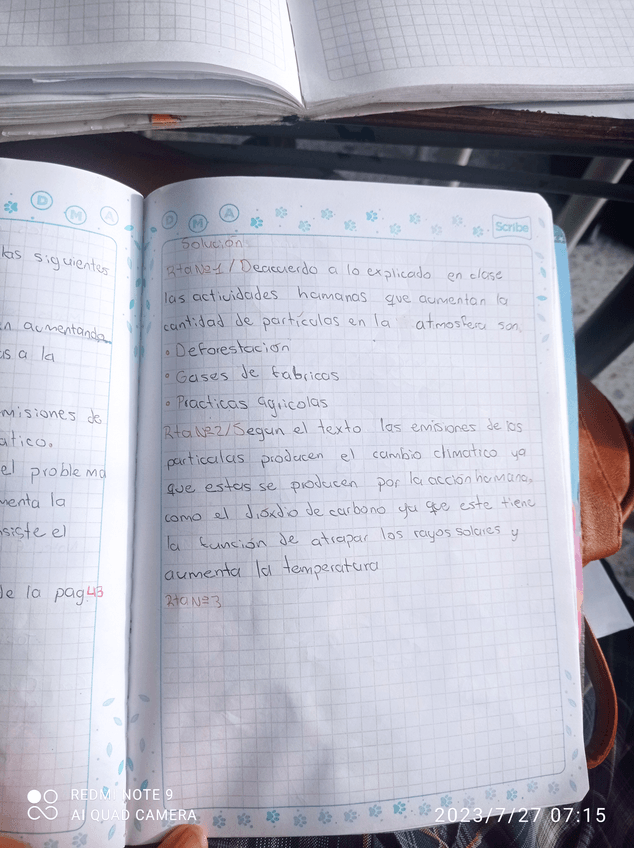 D M A
las siguientes
n aumentando
as a la
misiones de
ático.
el problema
menta la
nsiste el
de la pag. 43
D M A
Scribe
Solución
Rta Nº1/Deacuerdo a lo explicado en clase
las actividades humanas que aumentan la
cantidad de partículas en la atmosfera son.
• Deforestación
• Gases de fabricas
• Practicas agricolas
Rta Nº2/Segun el texto las emisiones de las
particulas producen el cambio climatico ya
que estas se producen por la acción humana,
como el dióxdio de carbono ya que este tiene
la función de atrapar los rayos solares y
aumenta la temperatura
Rta Nº3
REDMI NOTE 9
AI QUAD CAMERA
2023/7/27 07:15